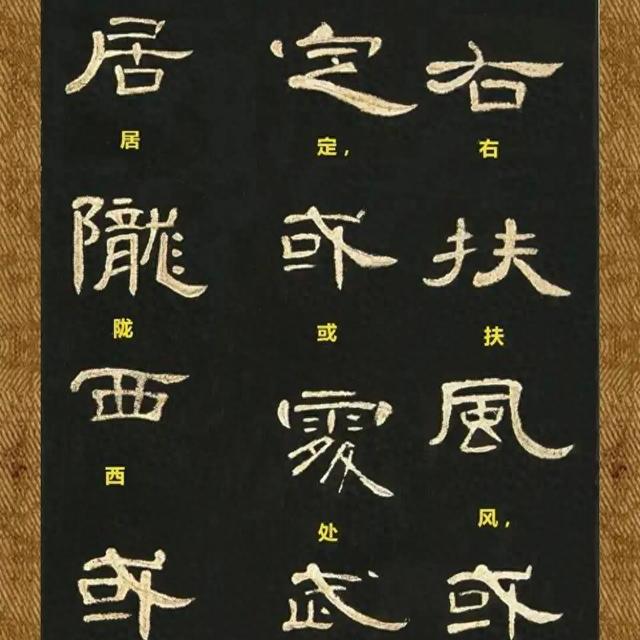 右扶風或
右扶风，
定或處武
定，或处
居隴西或
居陇西